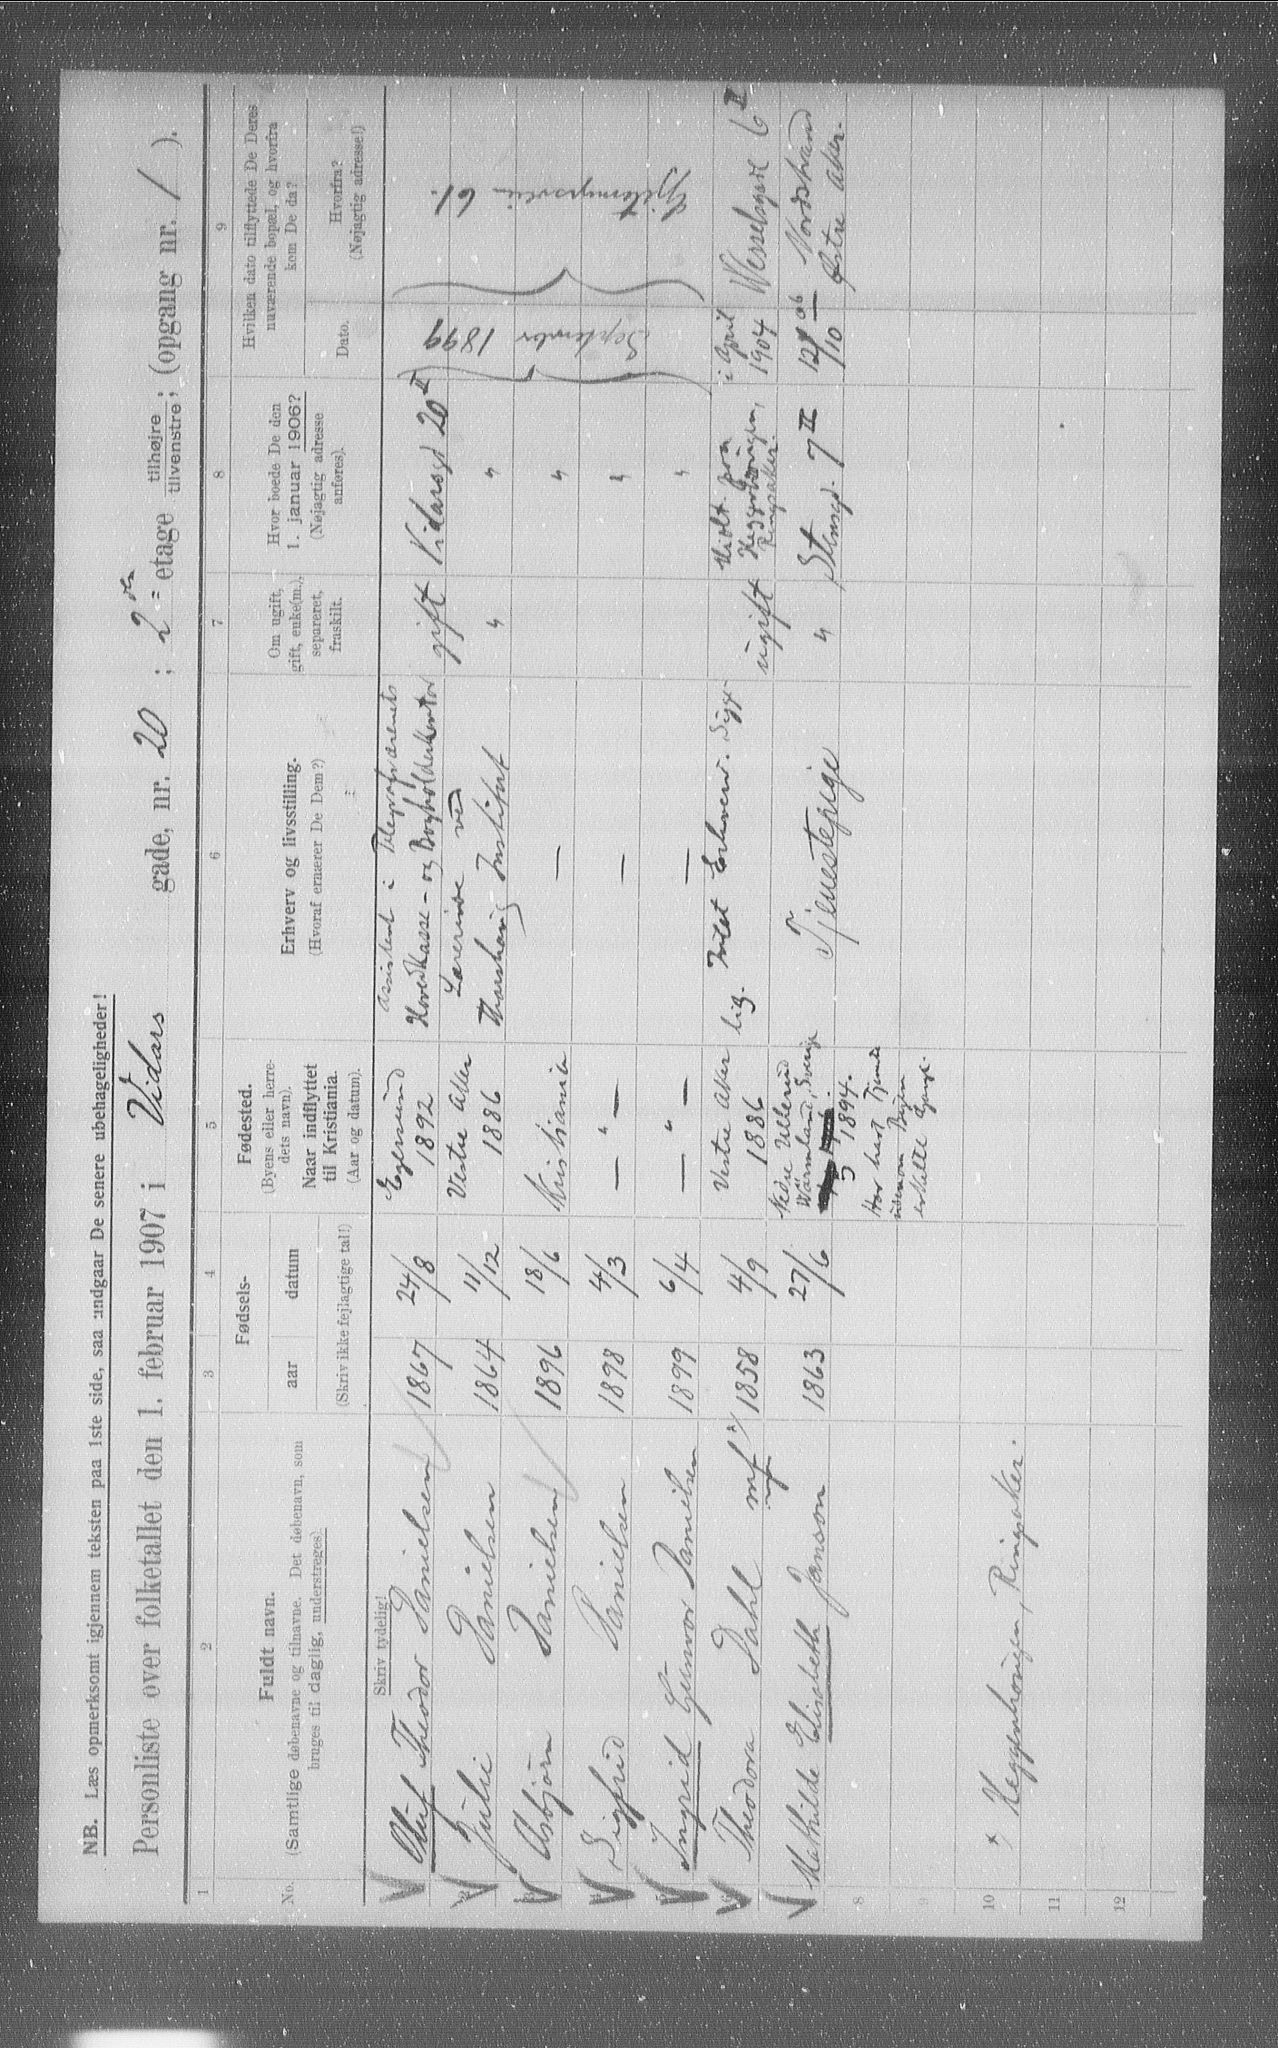 NB. Læs opmerksomt igjennem teksten paa 1ste side, saa undgaar De senere ubehageligheder!
Personliste over folketallet den 1. februar 1907 i Vidars gade, nr. 20 ; 2 den etage tilhøjre / tilvenstre ; (opgang nr. / ).
1 2 3 4 5 6 7 8 9
No. Fuldt navn.
(Samtlige døbenavne og tilnavne. Det døbenavn, som
bruges til daglig, understreges).
Skriv tydelig!
Fødsels-
aar datum
(Skriv ikke fejlagtige tal!)
Fødested.
(Byens eller herre-
dets navn).
Naar indflyttet
til Kristiania.
(Aar og datum).
Erhverv og livsstilling.
(Hvoraf ernærer De Dem?)
Om ugift,
gift, enke(m.),
separeret,
fraskilt.
Hvor boede De den
1. januar 1906?
(Nøjagtig adresse
anføres).
Hvilken dato tilflyttede De Deres
nuværende bopæl, og hvorfra
kom De da?
Dato. Hvorfra?
(Nøjagtig adresse!)
Oluf Theodor Danielsen 1867 24/8 Egersund 1892 Assistent i Telegrafvæsenets Hovedkasse- og Bogholderkontor gift Vidarsgd 20 II
2 Julie Danielsen 1864 11/12 Vestre Aker 1886 Lærerinde ved Institut " "
September 1899 61.
3 Asbjørn Danielsen 1896 18/6 Kristiania — "
4 Sigfrid Danielsen 1898 4/3 — " — — "
5 Ingrid Gunvor Danielsen 1899 6/4 — " — — "
6 Theodora Dahl x) 1858 4/9 Vestre Aker 1886 Intet Erhverv. Syge-
lig. ugift Ringsaker. i April 1904 Wesselsgd 6 II
Mathilde Elisabeth Janson 1863 27/6 Nedre Ullerud Wärmland, Sverige 1894. Tjenestepige " Stensgd. 7 II 12/10 06 Nordstrand Østre Aker.
Har hest
Byen
enkelte Gange.
8
9
10
x) Heggenhougen, Ringsaker.
11
12